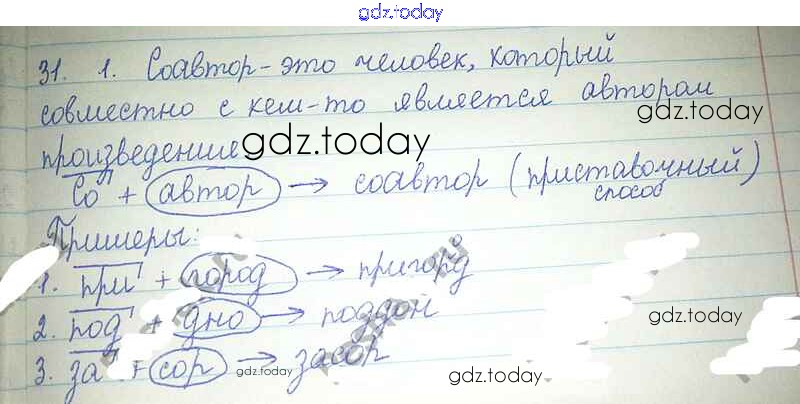 gdz.today
31. 1. Соавтор - это человек, который
совместно с кем-то является автором
gdz.today
произведение
gdz.today
Со + автор → соавтор (приставочный)
способ
Примеры:
1. при + город → пригорд
2. под + дно → поддон
gdz.today
3. за + сор → засор
gdz.today
gdz.today